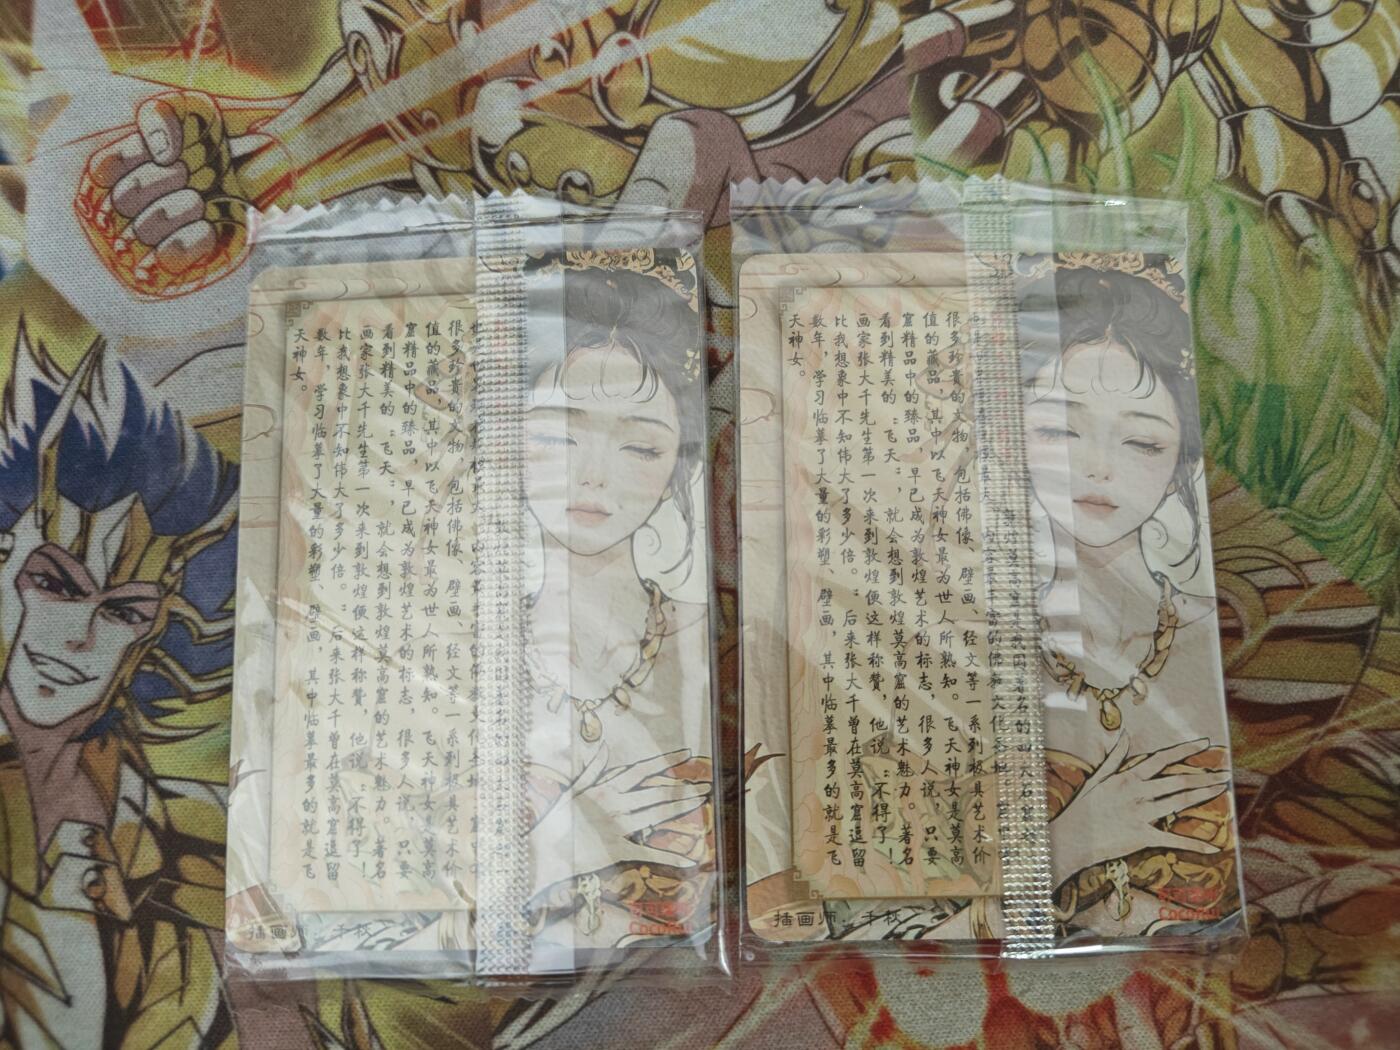 很多珍贵的文物，包括佛像、壁画、经文等一系列极具艺术价
值的藏品，其中以飞天神女最为世人所熟知。飞天神女是莫高
窟精品中的臻品，早已成为敦煌艺术的标志，很多人说，只要
看到精美的“飞天”，就会想到敦煌莫高窟的艺术魅力。著名
画家张大千先生第一次来到敦煌便这样称赞，他说“不得了！
比我想象中不知伟大了多少倍。”后来张大千曾在莫高窟逗留
数年，学习临摹了大量的彩塑、壁画，其中临摹最多的就是飞
天神女。
插画师
内容最丰富的佛教文化圣地
很多珍贵的文物，包括佛像、壁画、经文等一系列极具艺术价
值的藏品，其中以飞天神女最为世人所熟知。飞天神女是莫高
窟精品中的臻品，早已成为敦煌艺术的标志，很多人说，只要
看到精美的“飞天”，就会想到敦煌莫高窟的艺术魅力。著名
画家张大千先生第一次来到敦煌便这样称赞，他说“不得了！
比我想象中不知伟大了多少倍。”后来张大千曾在莫高窟逗留
数年，学习临摹了大量的彩塑、壁画，其中临摹最多的就是飞
天神女。
插画师